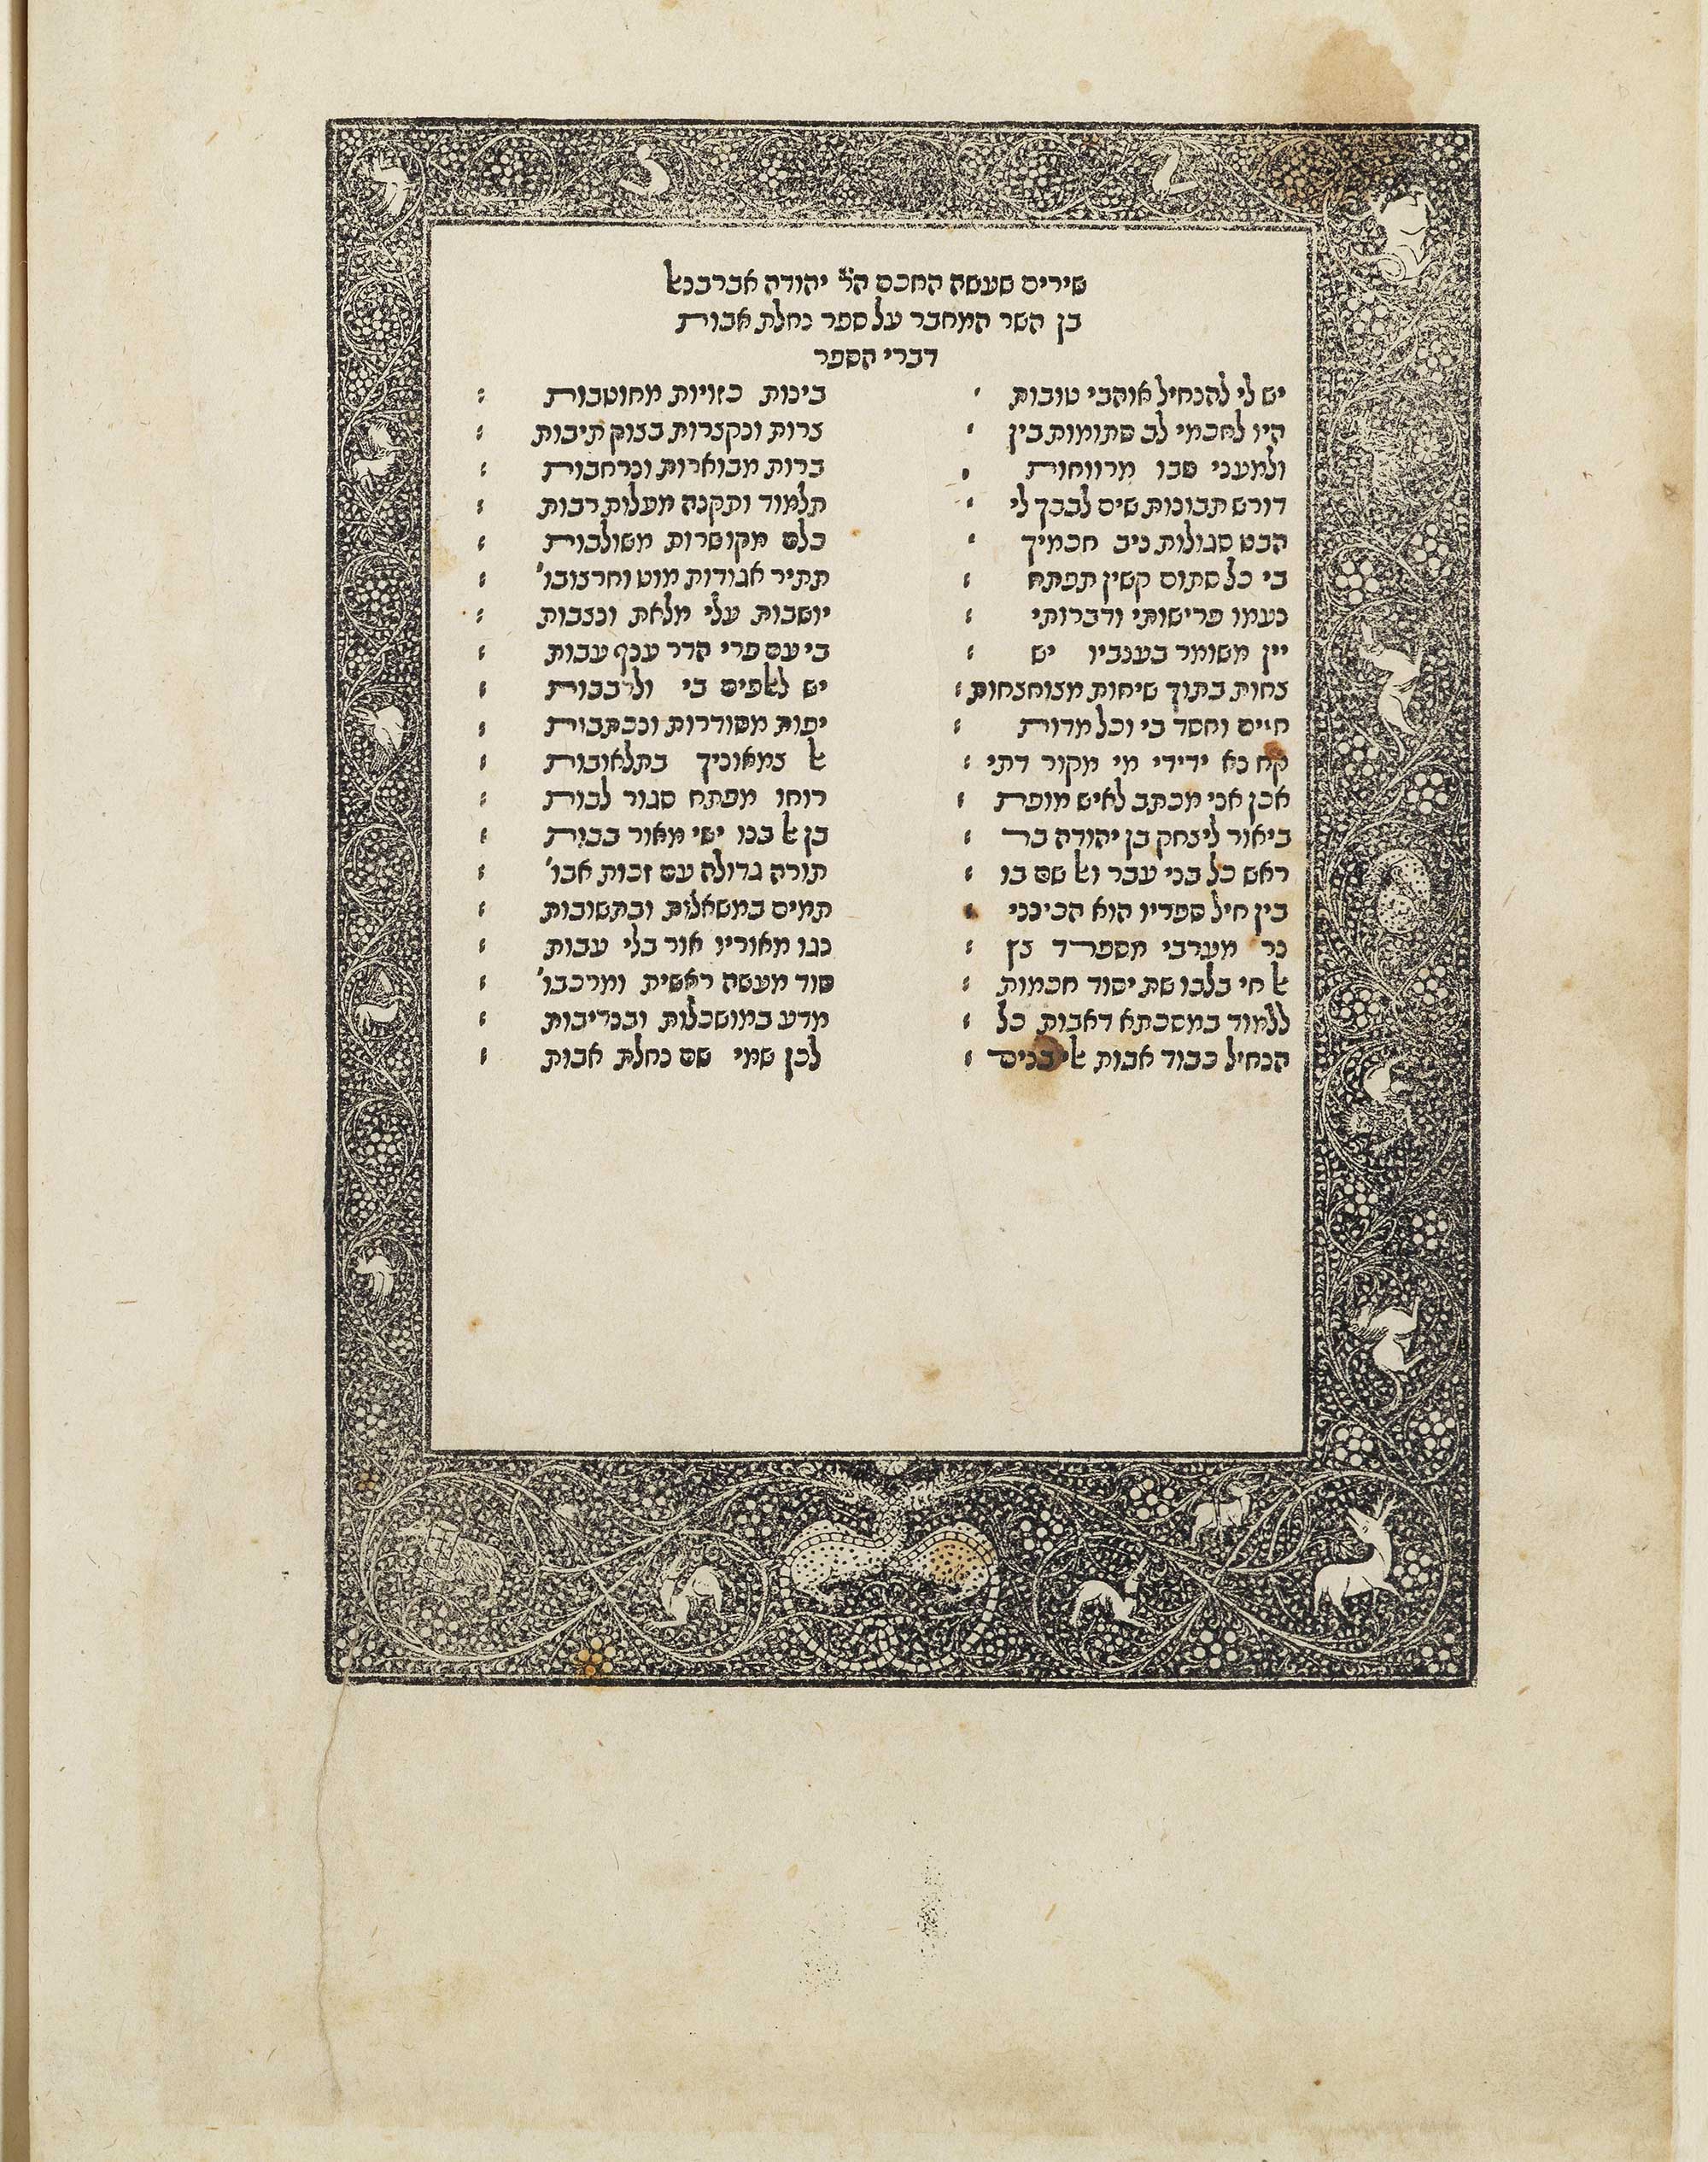 שירים שעשה החכם הר' יהודה אברבנאל
בן השר המחבר על ספר נחלת אבות
דברי הספר
יש לי להנחיל אוהבי טובות : בינות כזויות מחוטבות :
היו לחכמי לב סתומות בין : צרות ונקצרות בצוק תיבות :
ולמעני סבו מרווחות : ברות מבוארות ונרחבות :
דורש תבונות שים לבבך לי : תלמוד ותקנה מעלות רבות :
הבט סגולות ניב חכמיך : כלם מקושרות משולבות :
בי כל סתום קשין תפתח : תתיר אגודות מוט וחרצובו'
נעמו פרישותי ודברותי : יושבות עלי מלאת ונצבות :
יין משומר בענביו יש : בי עם פרי הדר ענף עבות :
צחות בתוך שיחות מצוחצחות : יש לאלפים בי ולרבבות :
חיים וחסד בי וכל מדות : יפות מסודרות ונכתבות :
קח נא ידידי מי מקור דתי : אל צמאוניך בתלאובות :
אכן אני מכתב לאיש מופת : רוחו מפתח סגור לבות :
ביאור ליצחק בן יהודה בר : בן אל בנו ישי מאור בבות :
ראש כל בני עבר ואל שם בו : תורה גדולה עם זכות אבו' :
בין חיל ספריו הוא הכינני : תמים במשאלות ובתשובות :
נר מערבי מספרד צץ : כגו מאוריו אור בלי עבות :
אל חי בלבו שת יסוד חכמות : סוד מעשה ראשית ומרכבו' :
ללמוד במסכתא דאבות כל : מדע במושכלות ובנדיבות :
הנחיל כבוד אבות אלי בנים : לכן שמי שם נחלת אבות :